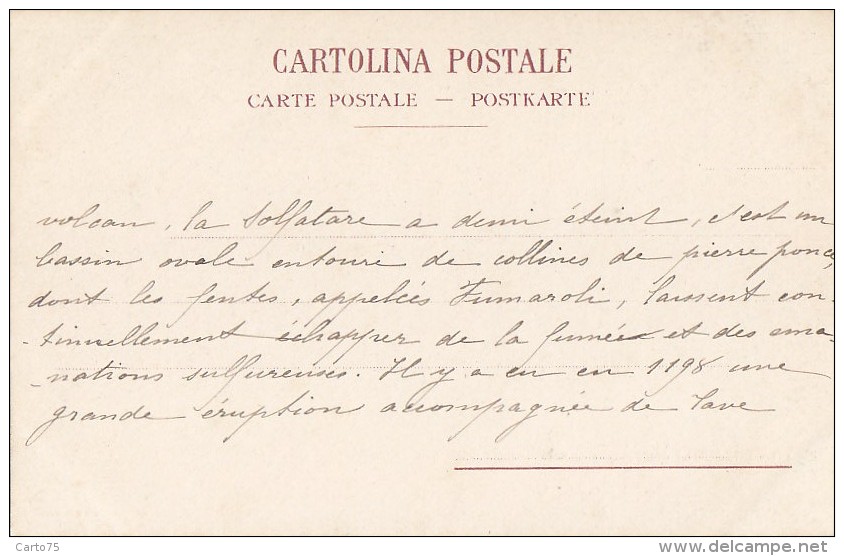 CARTOLINA POSTALE
CARTE POSTALE — POSTKARTE
volcan, la Solfatare a demi éteint, c'est un
bassin ovale entouré de collines de pierre ponce,
dont les fentes, appelées Fumaroli, laissent con-
-tinuellement échapper de la fumée et des ema-
-nations sulfureuses. Il y a eu en 1198 une
grande éruption accompagnée de lave
Carto75
www.delcampe.net